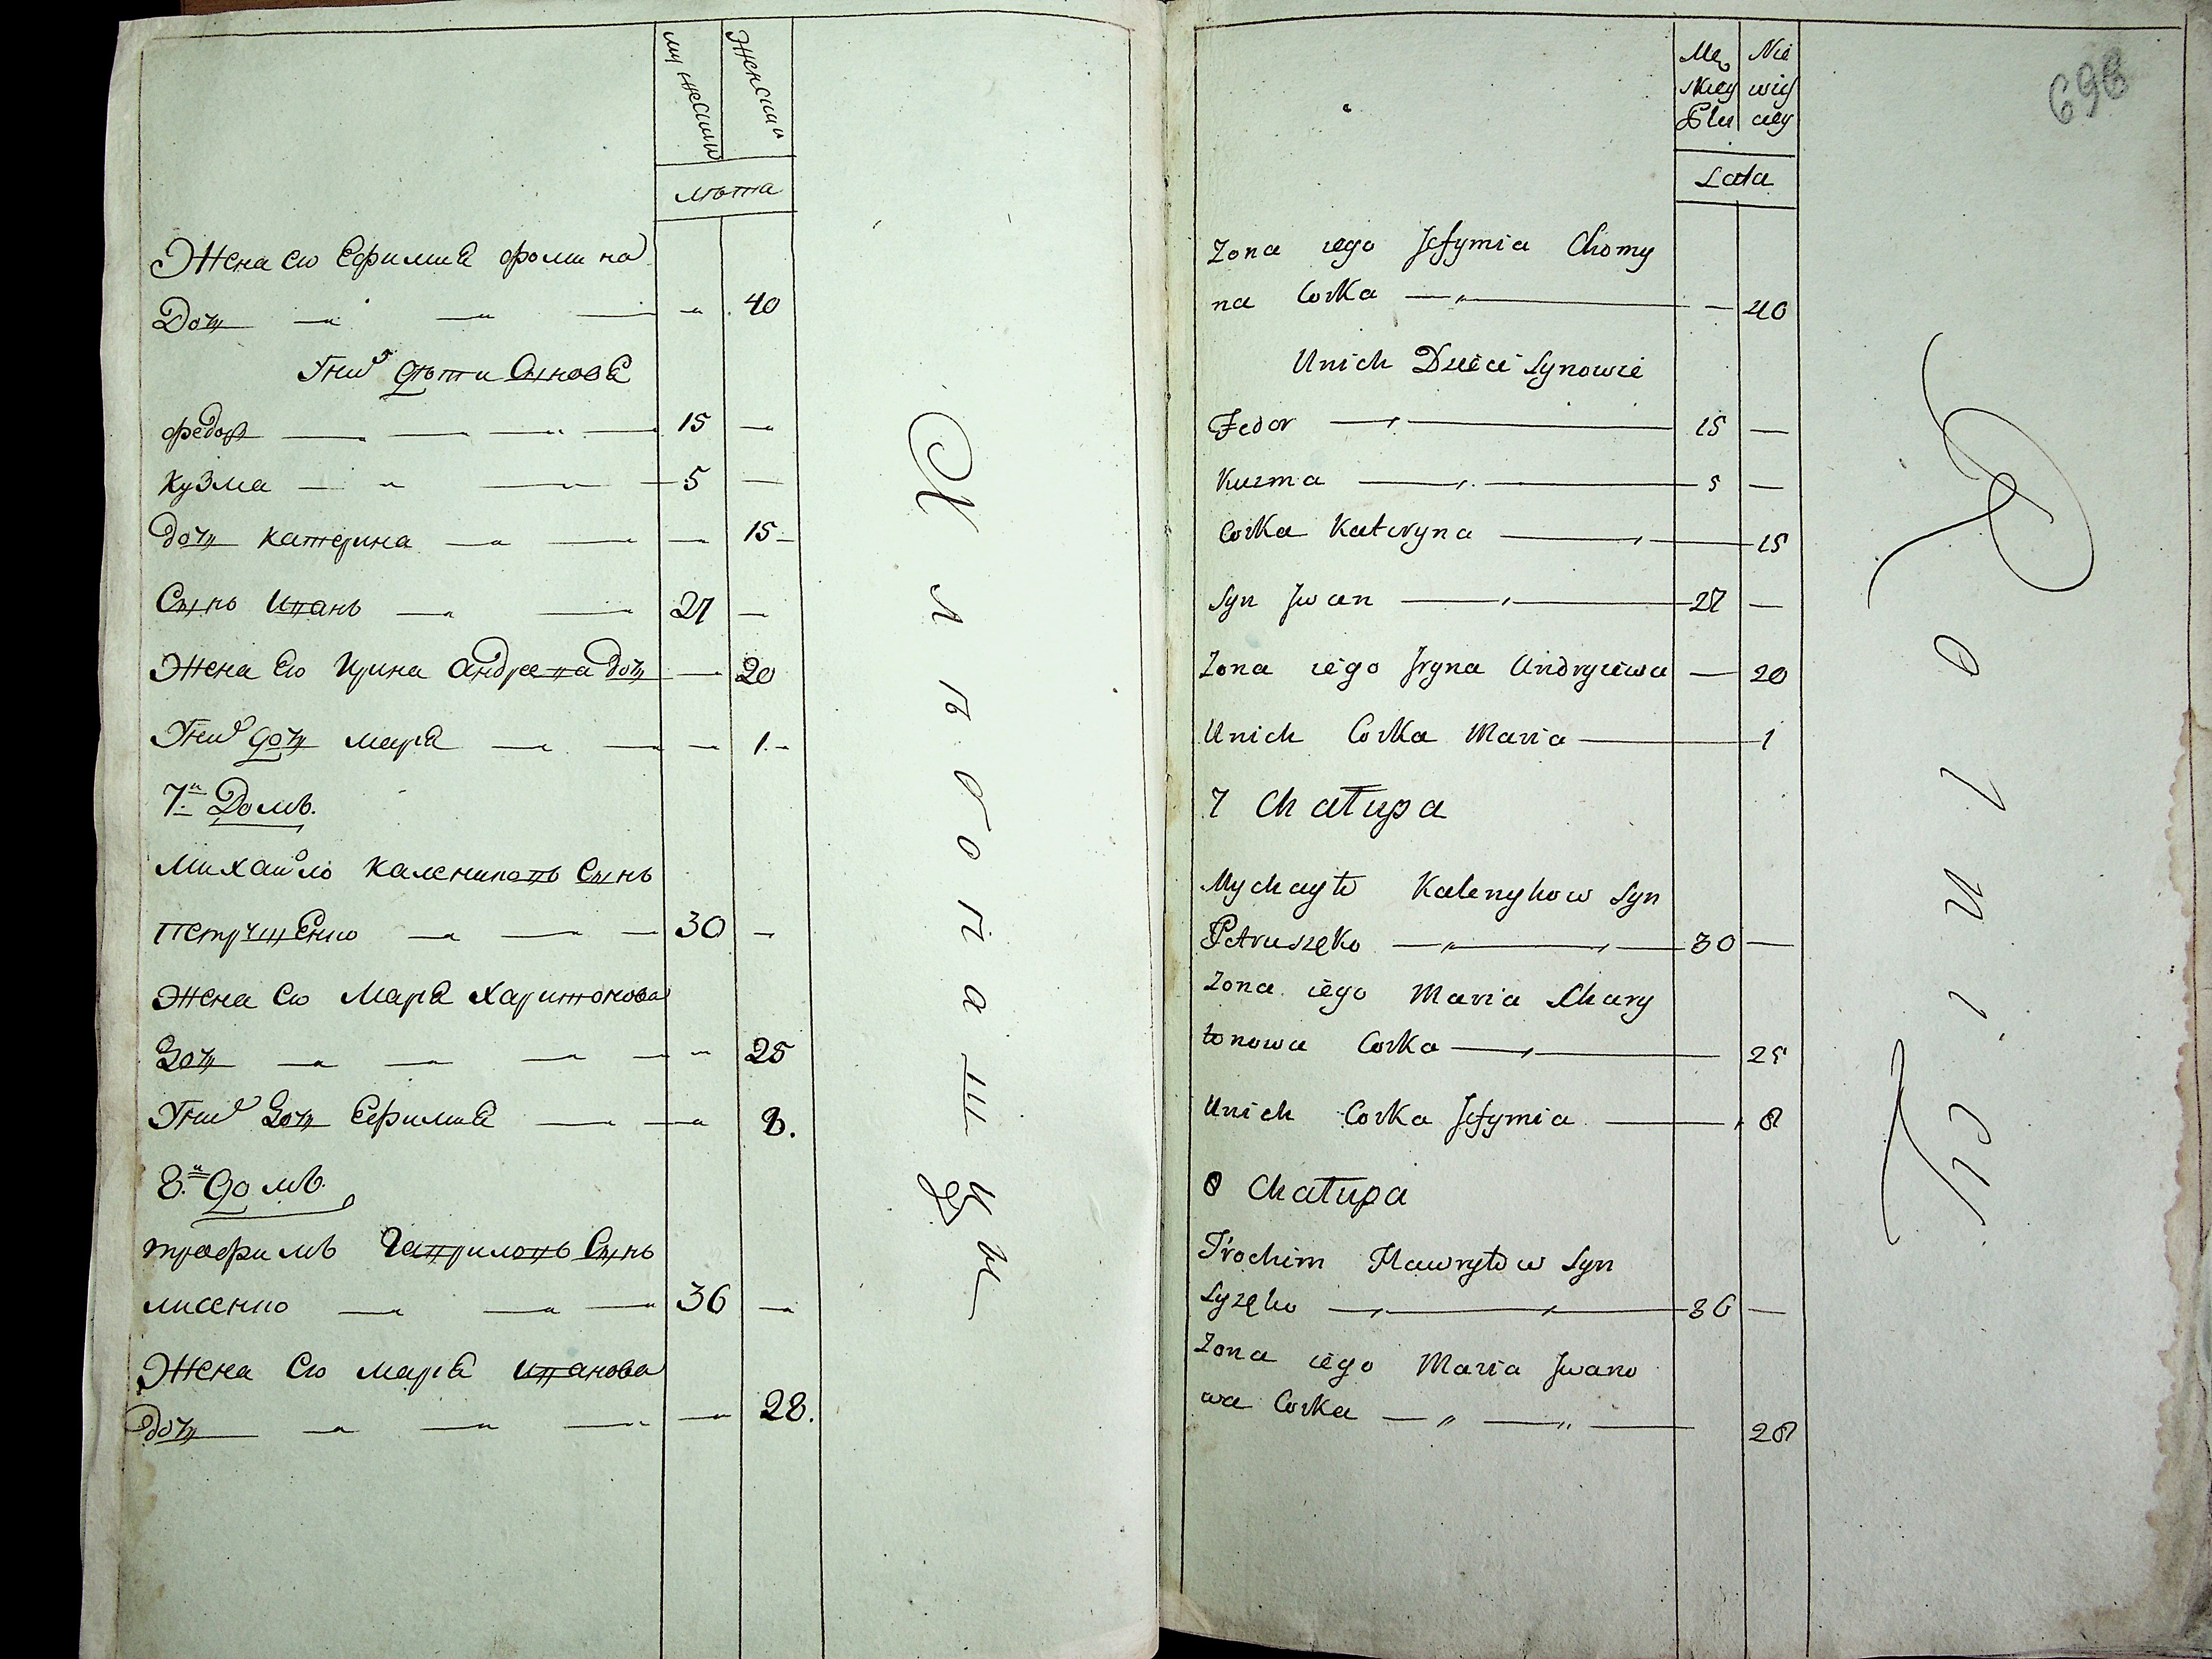 мужеский
женский
лѣта
Жена его Ефимиа Фомина
Дочь 40
У них дѣти Сынова
Федор 15 —
Кузма 5 —
дочь катерина — 15
Сынъ Иванъ 27 —
Жена его Ирина Андреева дочь — 20
У них дочь Мариа — 1
7й Домъ.
Михайло Калениковъ Сынъ
Петрушенко 30 —
Жена его Мариа Харитонова
дочь 25
У них дочь Ефимиа — 8.
8й домъ.
трофимъ Гавриловъ Сынъ
лисенко 36 —
Жена его Мариа Иванова
дочь — 28.
Męz Nie
Lata
696
Zona iego Jefymia Chomy
na Corka — 40
Unich Dzieci Synowie
Fedor 15 —
Kuzma 5 —
Corka Kateryna 15
Syn Jwan 27 —
Zona iego Jryna Andryiewa — 20
Unich Corka Maria 1
7 Chałupa
Mychayło Kalenykow Syn
Petruszęko 30 —
Zona iego Maria Chary
tonowa Corka 25
Unich Corka Jefymia 8
8 Chałupa
Trochim Hawryłow Syn
Lyzęko 36 —
Zona iego Maria Jwano
wa Corka 28